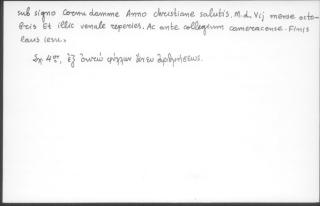 sub signo Cornu damme Anno christiane salutis. M.d. vij mense octo-
bris Et illic venale reperies. Ac ante collegium cameracense. Finis
laus iesu.
In 4to, ἐξ ὀκτὼ φύλλων ἄνευ ἀριθμήσεως.